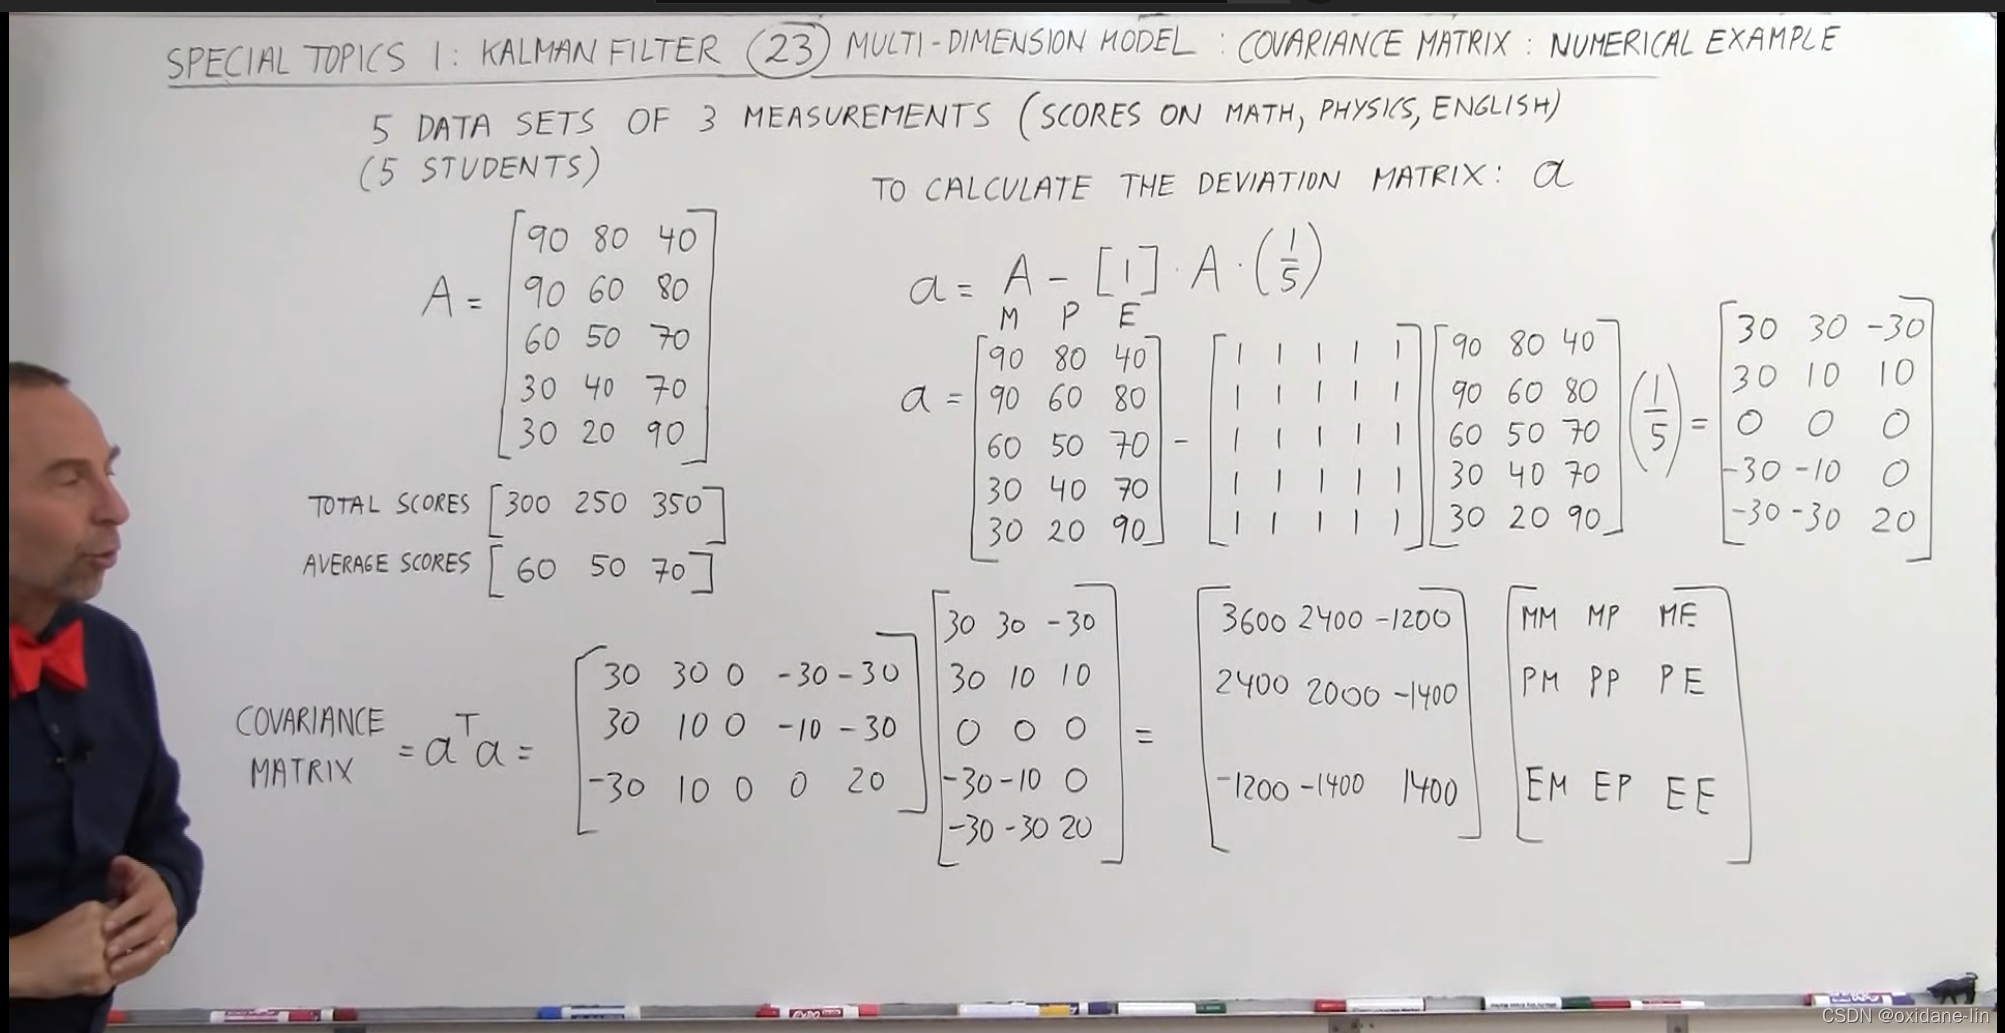 SPECIAL TOPICS 1: KALMAN FILTER (23) MULTI-DIMENSION MODEL : COVARIANCE MATRIX : NUMERICAL EXAMPLE
5 DATA SETS OF 3 MEASUREMENTS (SCORES ON MATH, PHYSICS, ENGLISH)
(5 STUDENTS)
A =
90 80 40
90 60 80
60 50 70
30 40 70
30 20 90
TOTAL SCORES [300 250 350]
AVERAGE SCORES [60 50 70]
TO CALCULATE THE DEVIATION MATRIX: a
a = A - [1] · A · (1/5)
M P E
a =
90 80 40
90 60 80
60 50 70
30 40 70
30 20 90
-
1 1 1 1 1
1 1 1 1 1
1 1 1 1 1
1 1 1 1 1
1 1 1 1 1
90 80 40
90 60 80
60 50 70
30 40 70
30 20 90
(1/5) =
30 30 -30
30 10 10
0 0 0
-30 -10 0
-30 -30 20
COVARIANCE
MATRIX
= aᵀa =
30 30 0 -30 -30
30 10 0 -10 -30
-30 10 0 0 20
30 30 -30
30 10 10
0 0 0
-30 -10 0
-30 -30 20
=
3600 2400 -1200
2400 2000 -1400
-1200 -1400 1400
MM MP ME
PM PP PE
EM EP EE
CSDN @oxidane-lin